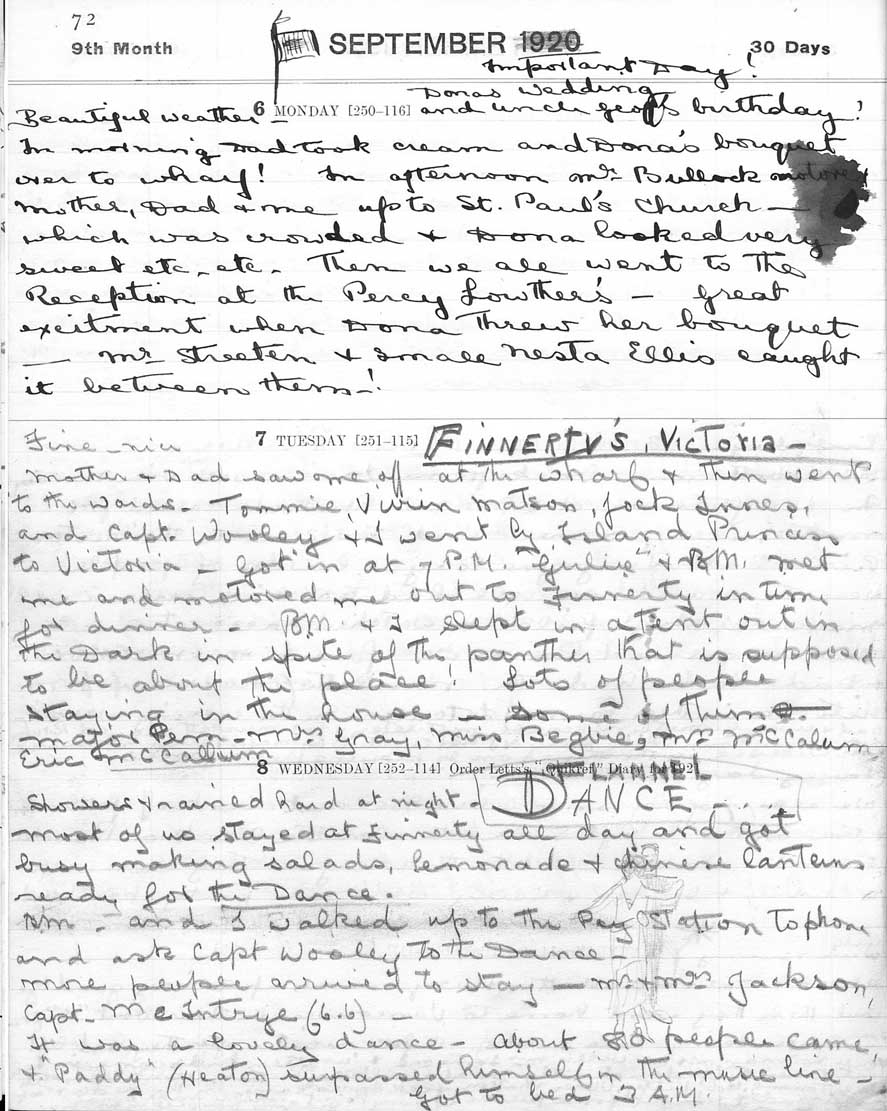 72
9th Month
SEPTEMBER 1920
30 Days
Important Day!
Donas Wedding
Beautiful weather -
6 MONDAY [250-116]
and uncle Geoff's birthday!
In morning Dad took cream and Dona's bouquet
over to wharf! In afternoon Mr. Bullock motored
Mother, Dad & me up to St. Paul's Church -
which was crowded & Dona looked very
sweet etc. etc. Then we all went to the
Reception at the Percy Lowther's - Great
excitment when Dona threw her bouquet
- Mr Streeten & small Nesta Ellis caught
it between them -!
Fine - nice
7 TUESDAY [251-115]
FINNERTY'S, VICTORIA -
Mother & Dad saw me off at the wharf & then went
to the wards. Tommie, Vivin Matson, Jock Innes,
and Capt. Wooley & I went by Island Princess
to Victoria - Got in at 7 P.M. "Gulie" & B.M. met
me and motored me out to Finnerty in time
for dinner - B.M. & I slept in a tent out in
the Dark in spite of the panther that is supposed
to be about the place! Lots of people
staying in the house - some of them
Major Pem - Mrs Gray, Miss Begbie, Mr McCalum
Eric McCallum
8 WEDNESDAY [252-114] Order Letts's "Quikref" Diary for 1921
FLANNEL
DANCE -
Showers & rained hard at night -
most of us stayed at Finnerty all day and got
busy making salads, lemonade & chinese lanterns
ready for the Dance.
B.M. - and I walked up to the Pay Station to phone
and ask Capt Wooley to the Dance -
more people arrived to stay - Mr & Mrs Jackson,
Capt - McIntrye (6.6) -
It was a lovely dance - about 80 people came,
& "Paddy" (Heaton) surpassed himself in the music line -
Got to bed 3 A.M.